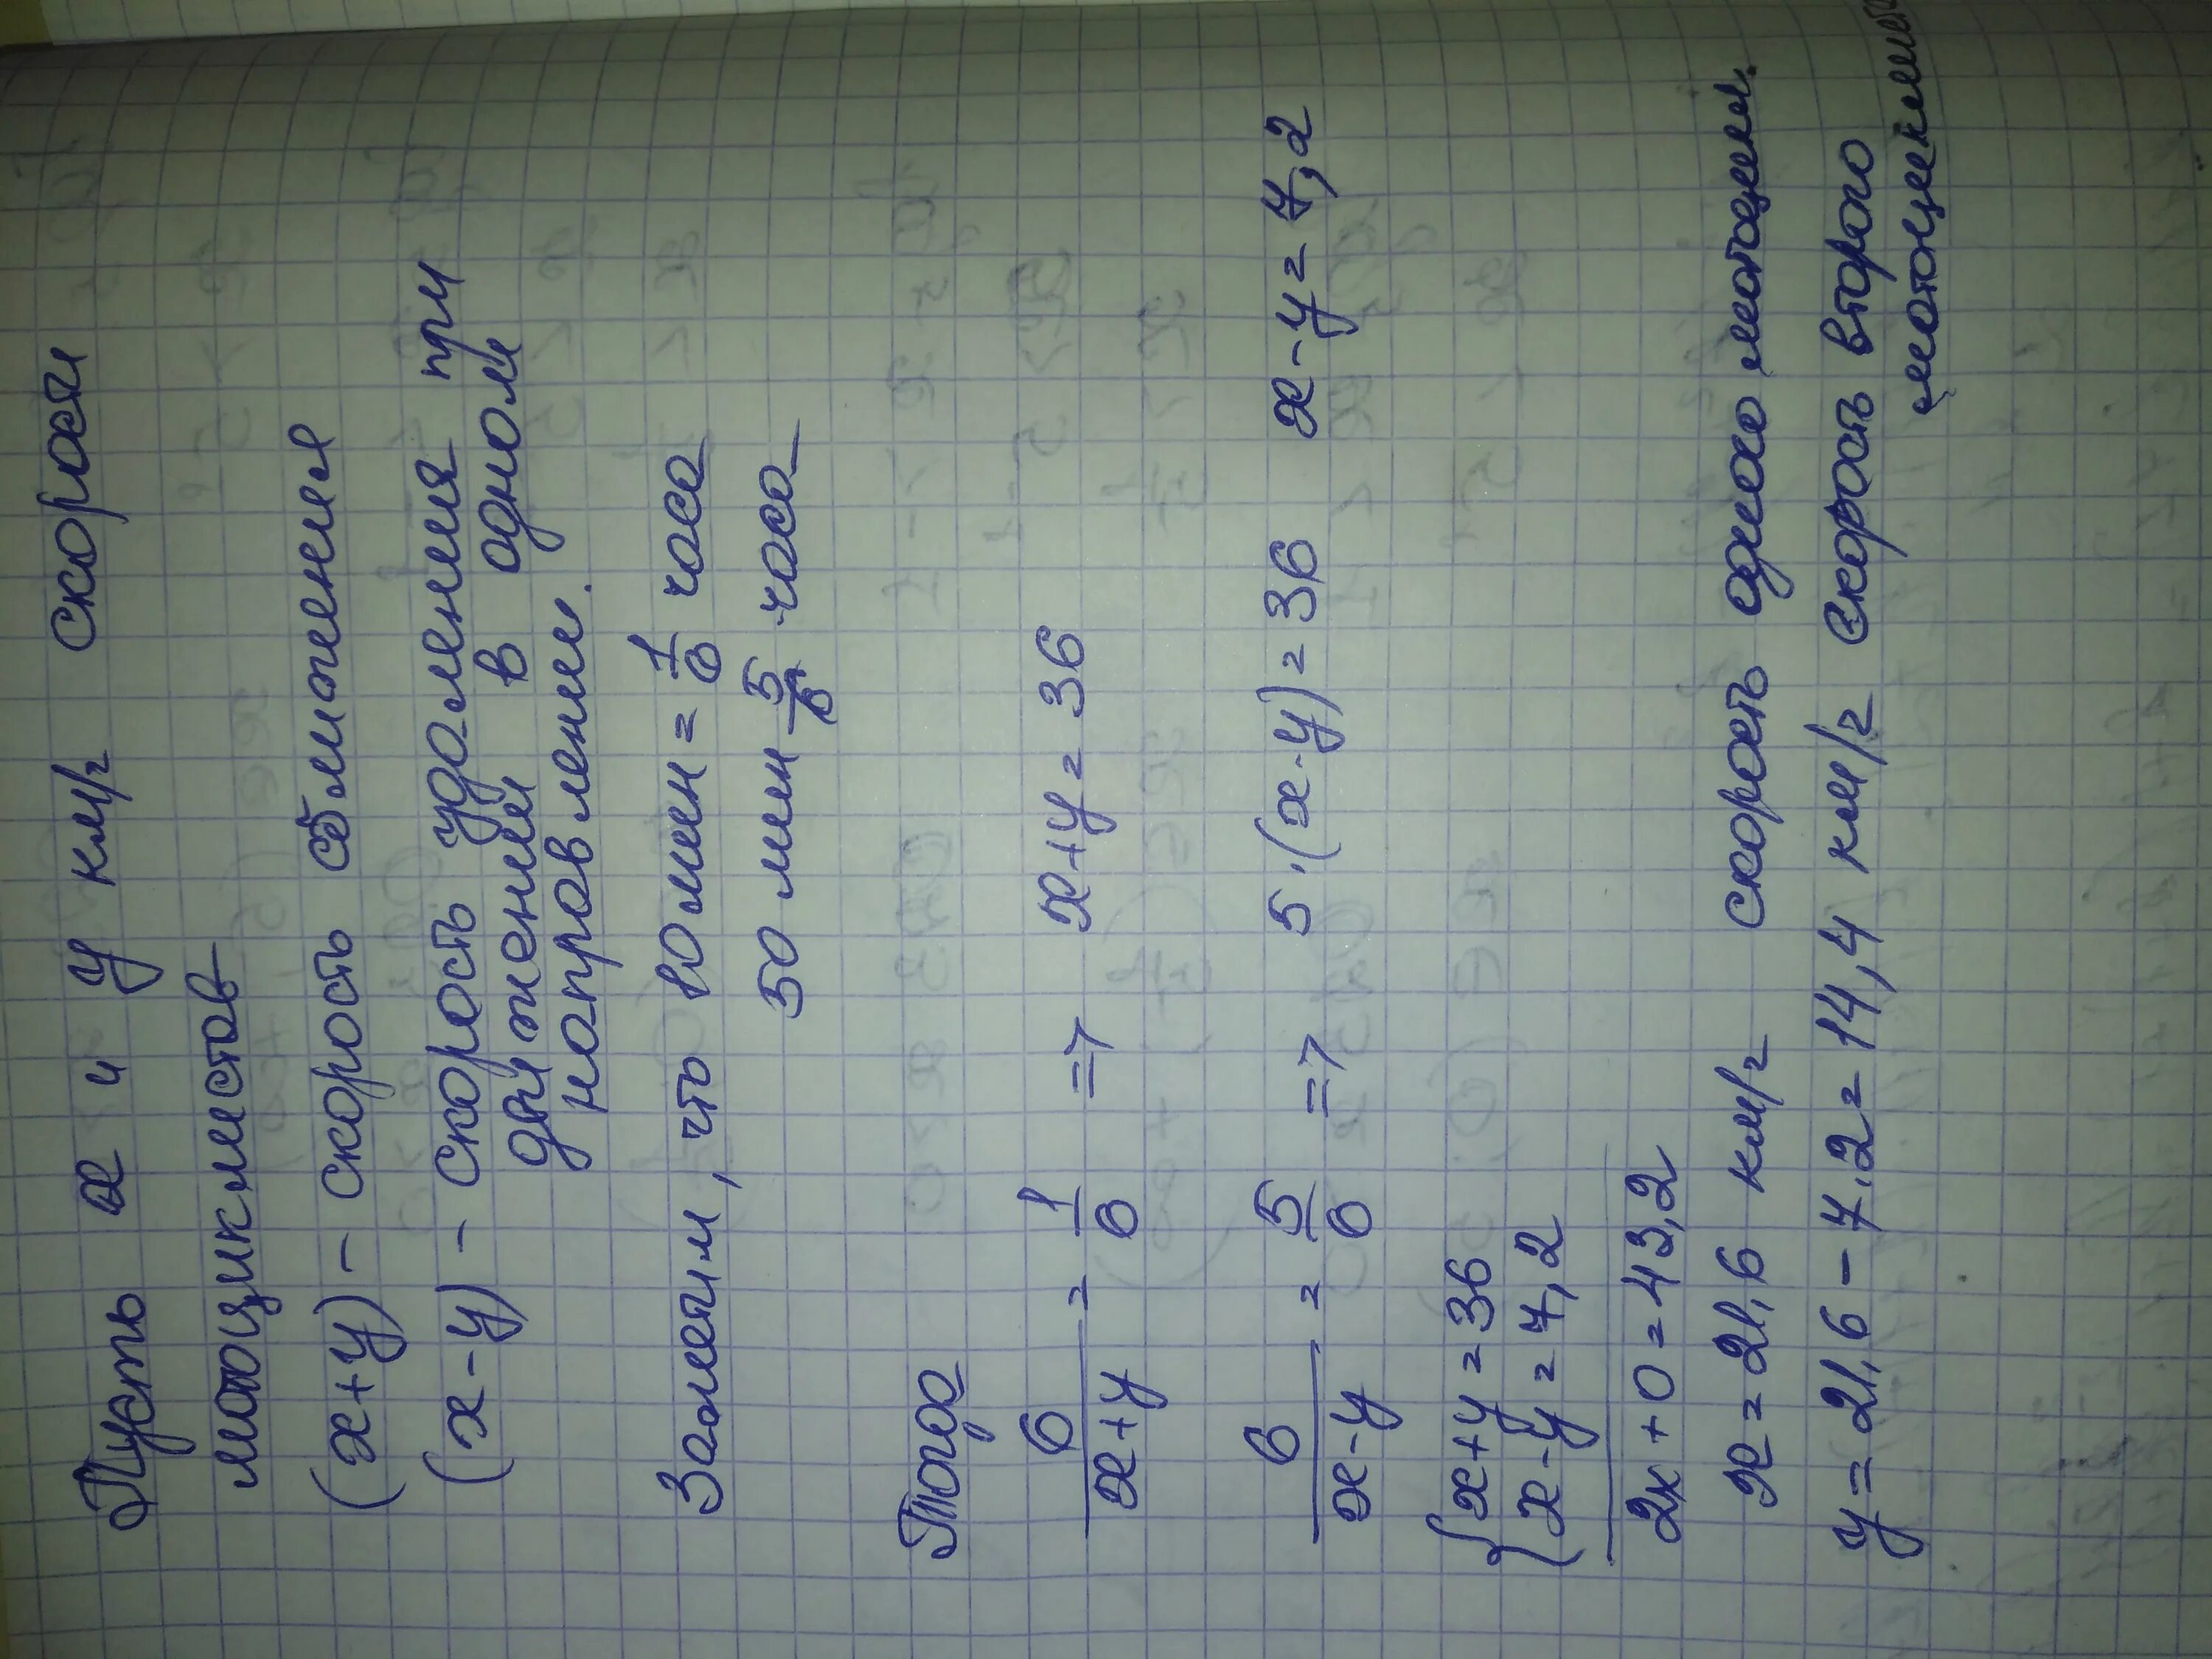 Пусть x и y км/г скорости
мотоциклистов
(x+y) – скорость сближения
(x-y) – скорость удаления при
движении в одном
направлении.
Заметим, что 10 мин = 1/6 часа
50 мин 5/6 часа
Тогда
6/(x+y) = 1/6 => x+y = 36
6/(x-y) = 5/6 => 5·(x-y) = 36 x-y = 7,2
{x+y = 36
x-y = 7,2
2x + 0 = 43,2
x = 21,6 км/г скорость одного мотоцикл.
y = 21,6 - 7.2 = 14,4 км/г скорость второго
мотоциклиста